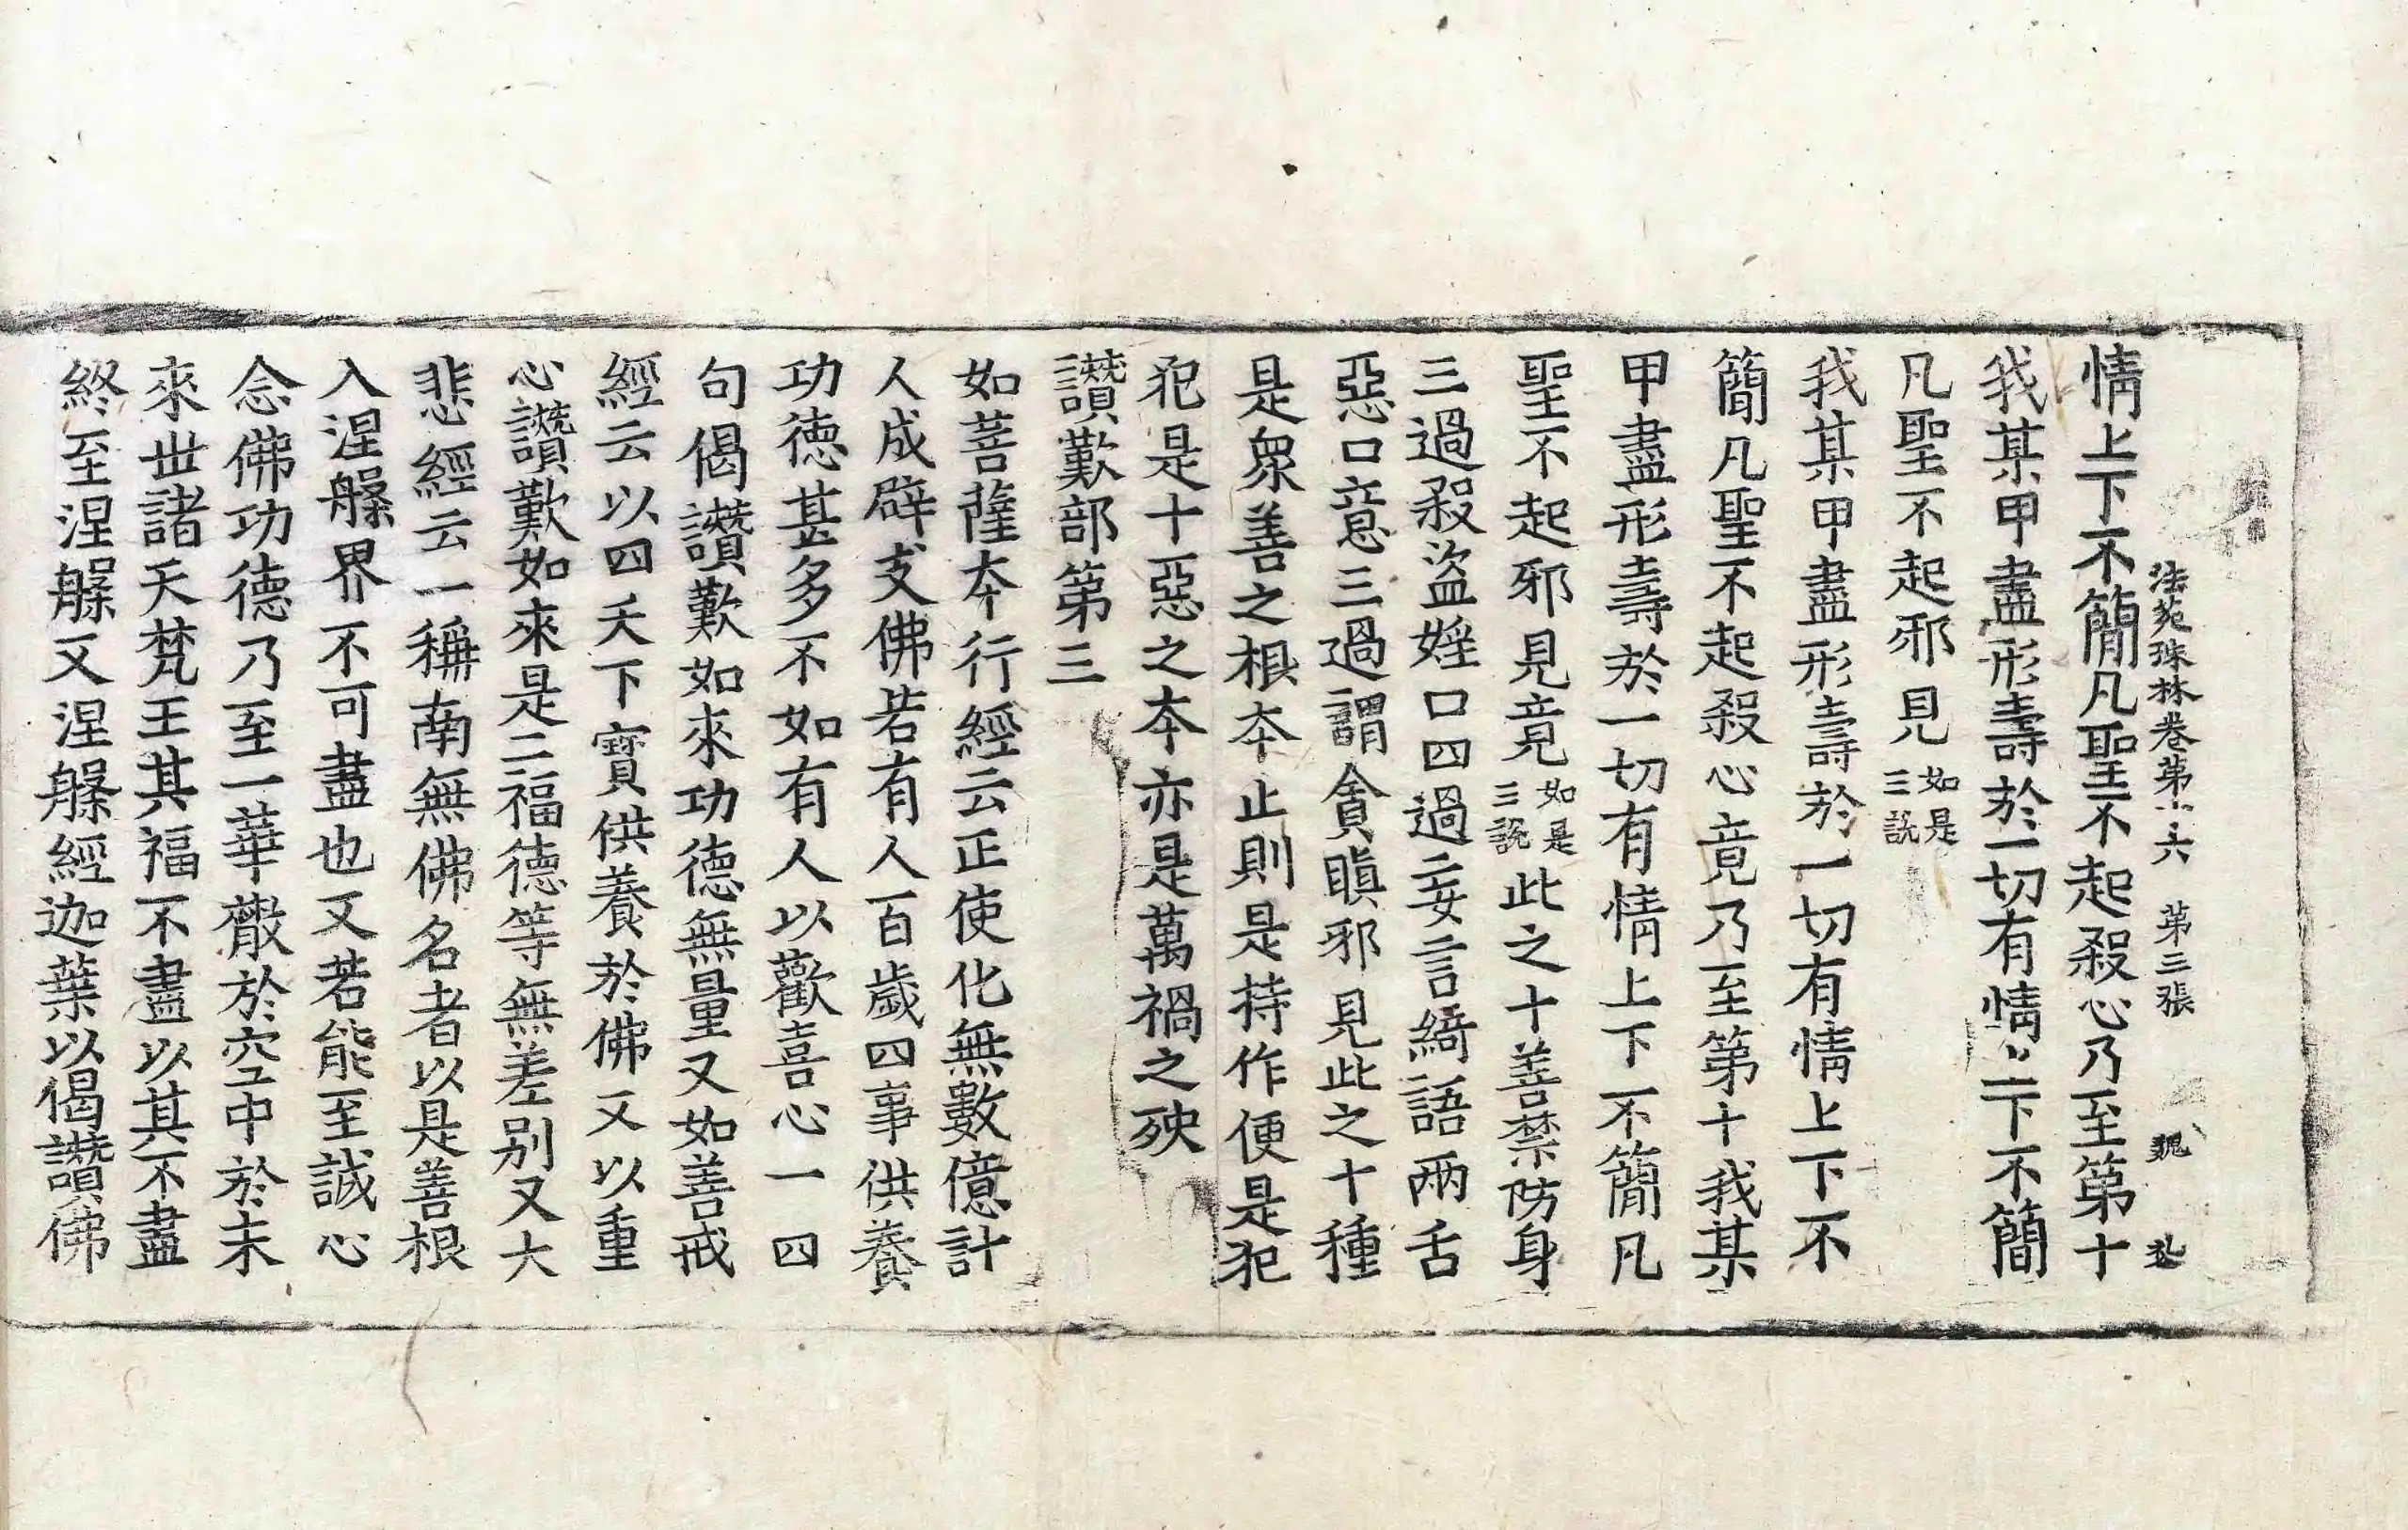 情上下不簡凡聖不起殺心乃至第十
法苑珠林卷第 六 第三張
我某甲盡形壽於一切有情上下不簡
凡聖不起邪見如是三說
我某甲盡形壽於一切有情上下不
簡凡聖不起殺心竟乃至第十我某
甲盡形壽於一切有情上下不簡凡
聖不起邪見竟如是三說此之十善禁防身
三過殺盜婬口四過妄言綺語兩舌
惡口意三過謂貪瞋邪見此之十種
是衆善之根夲止則是持作便是犯
犯是十惡之夲亦是萬禍之殃
讚歎部第三
如菩薩夲行經云正使化無數億計
人成辟支佛若有人百歲四事供養
功德甚多不如有人以歡喜心一四
句偈讚歎如來功德無量又如善戒
經云以四天下寶供養於佛又以重
心讚歎如來是二福德等無差别又大
悲經云一稱南無佛名者以是善根
入涅槃界不可盡也又若能至誠心
念佛功德乃至一華散於空中於未
來世諸天梵王其福不盡以其不盡
終至涅槃又涅槃經迦葉以偈讚佛